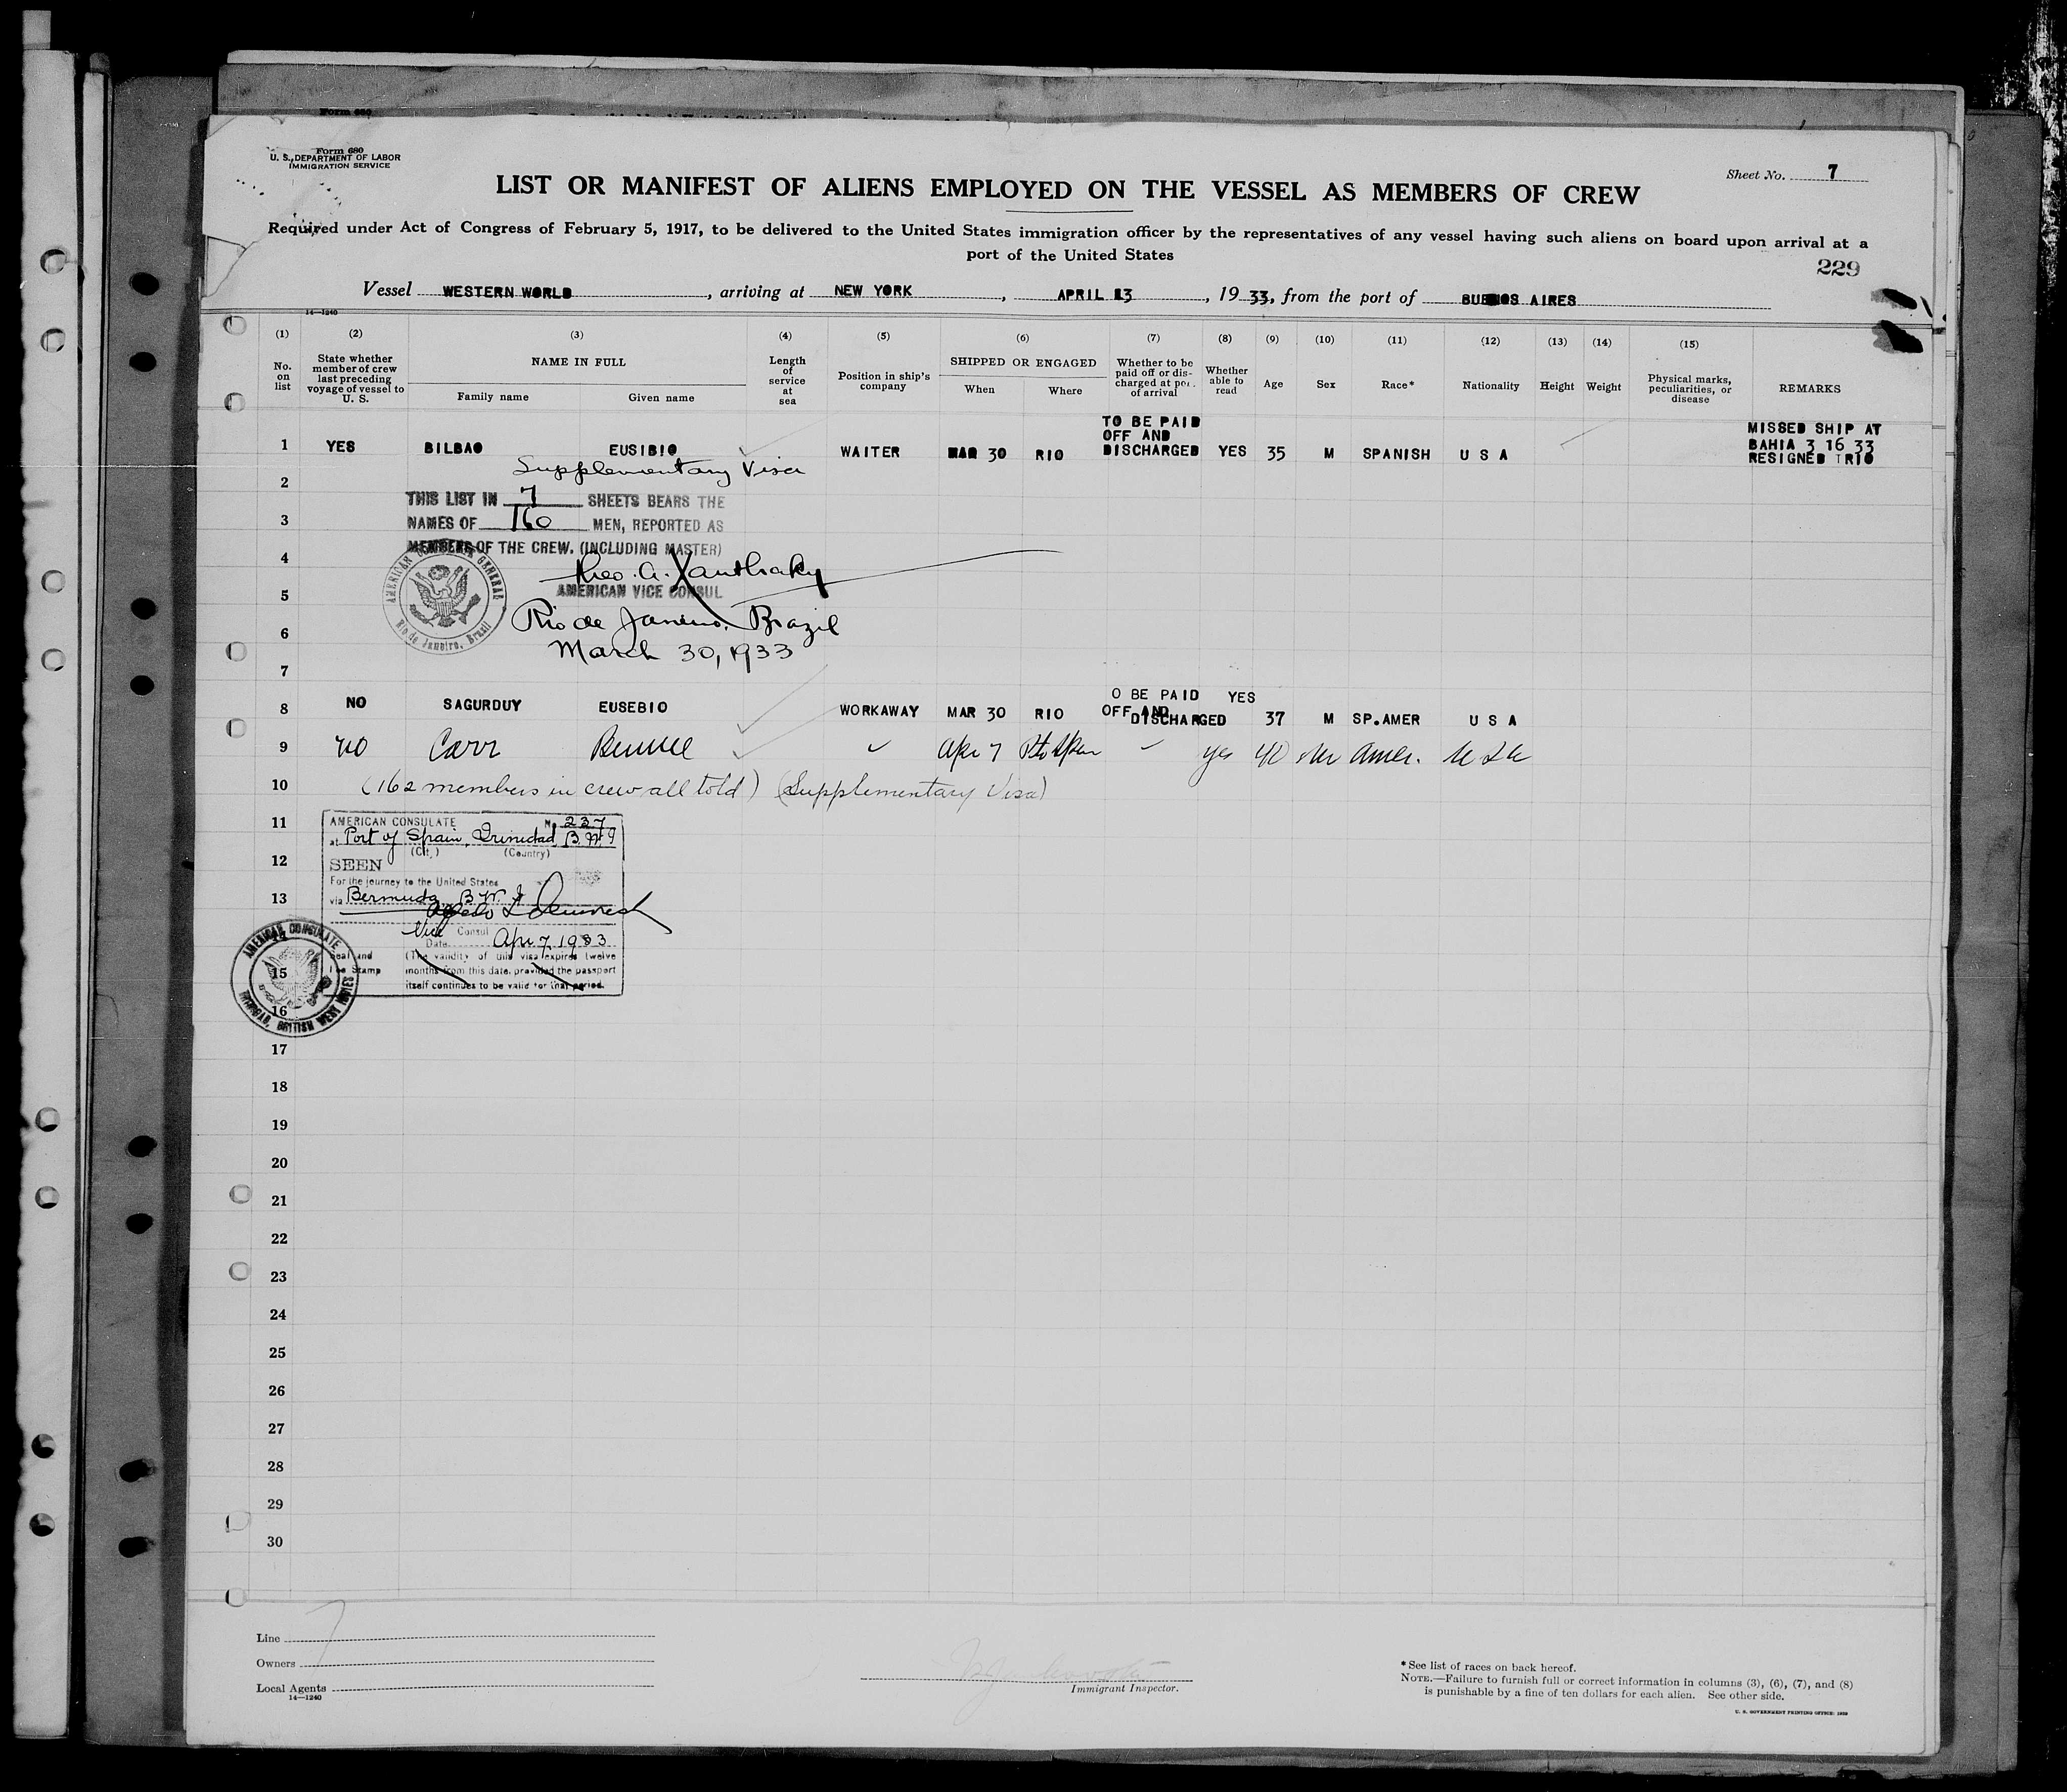 Form 680
U. S. DEPARTMENT OF LABOR
IMMIGRATION SERVICE
Sheet No. 7
LIST OR MANIFEST OF ALIENS EMPLOYED ON THE VESSEL AS MEMBERS OF CREW
Required under Act of Congress of February 5, 1917, to be delivered to the United States immigration officer by the representatives of any vessel having such aliens on board upon arrival at a
port of the United States
229
Vessel WESTERN WORLD, arriving at NEW YORK, APRIL 13, 1933, from the port of BUENOS AIRES
14—1240
(1) (2) (3) (4) (5) (6) (7) (8) (9) (10) (11) (12) (13) (14) (15)
No. on list
State whether member of crew last preceding voyage of vessel to U. S.
NAME IN FULL
Family name Given name
Length of service at sea
Position in ship's company
SHIPPED OR ENGAGED
When Where
Whether to be paid off or discharged at port of arrival
Whether able to read
Age
Sex
Race*
Nationality
Height
Weight
Physical marks, peculiarities, or disease
REMARKS
1 YES BILBAO EUSIBIO WAITER MAR 30 RIO TO BE PAID OFF AND DISCHARGED YES 35 M SPANISH U S A MISSED SHIP AT BAHIA 3 16 33 RESIGNED TRIO
Supplementary Visa
2
THIS LIST IN 7 SHEETS BEARS THE
3
NAMES OF 160 MEN, REPORTED AS
4
MEMBERS OF THE CREW. (INCLUDING MASTER)
Theo. A. Xanthaky
5
AMERICAN VICE CONSUL
AMERICAN CONSULATE GENERAL
Rio de Janeiro, Brazil
6
Rio de Janeiro, Brazil
March 30, 1933
7
8 NO SAGURDUY EUSEBIO WORKAWAY MAR 30 RIO O BE PAID OFF AND DISCHARGED YES 37 M SP.AMER U S A
9 no Carr Apr 7 yes 42 Amer. U S A
10 (162 members in crew all told) (Supplementary Visa)
11
AMERICAN CONSULATE No. 237
at Port of Spain, Trinidad B.W.I
(City) (Country)
12
SEEN
For the journey to the United States
13
via Bermuda B.W.I.
Vice Consul
Date Apr 7, 1933
14
Seal and Fee Stamp
(The validity of this visa expires twelve
months from this date, provided the passport
itself continues to be valid for that period.
AMERICAN CONSULATE
TRINIDAD, BRITISH WEST INDIES
15
16
17
18
19
20
21
22
23
24
25
26
27
28
29
30
Line
Owners
Local Agents
14—1240
Immigrant Inspector.
*See list of races on back hereof.
NOTE.—Failure to furnish full or correct information in columns (3), (6), (7), and (8)
is punishable by a fine of ten dollars for each alien. See other side.